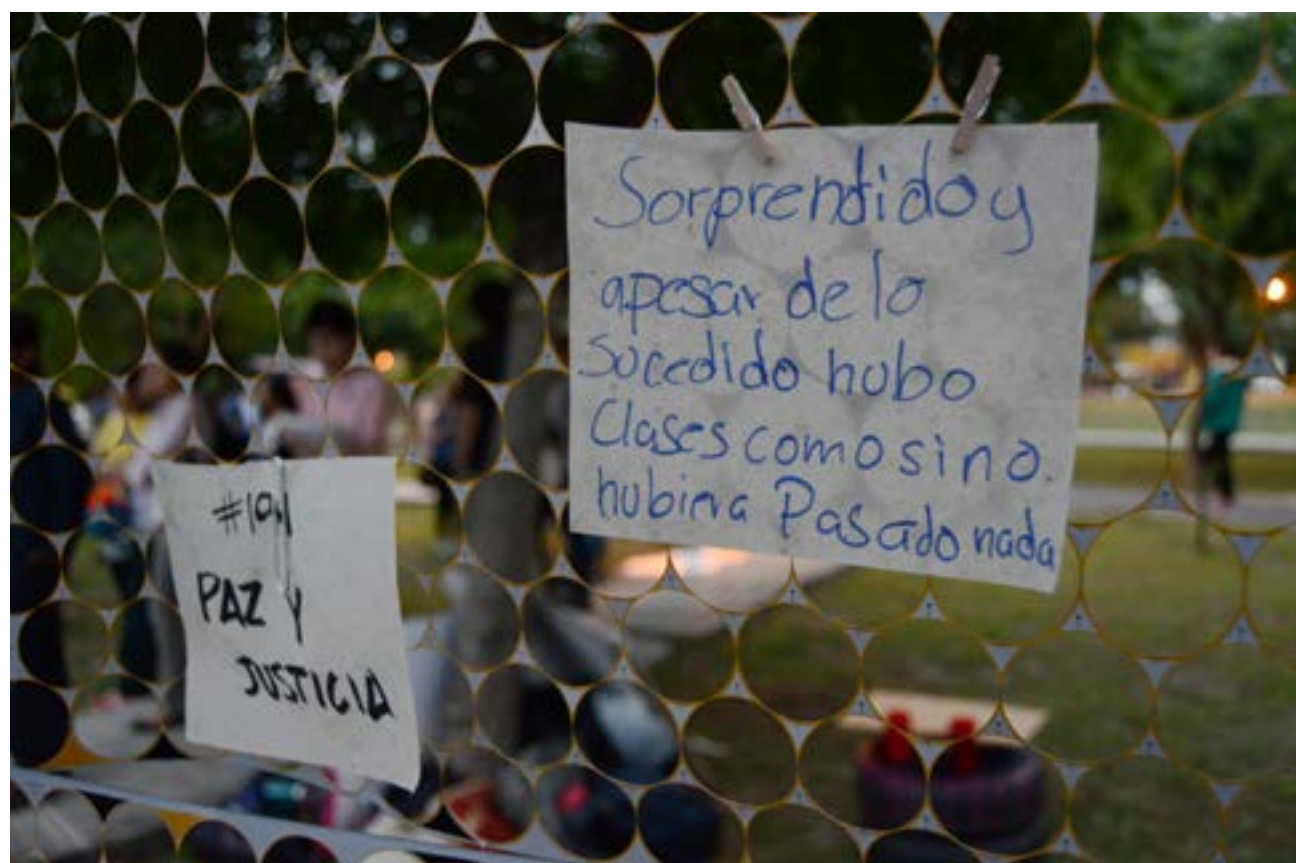 Sorprendido y
apesar de lo
sucedido hubo
Clases como si no.
hubiera Pasado nada
PAZ Y
JUSTICIA